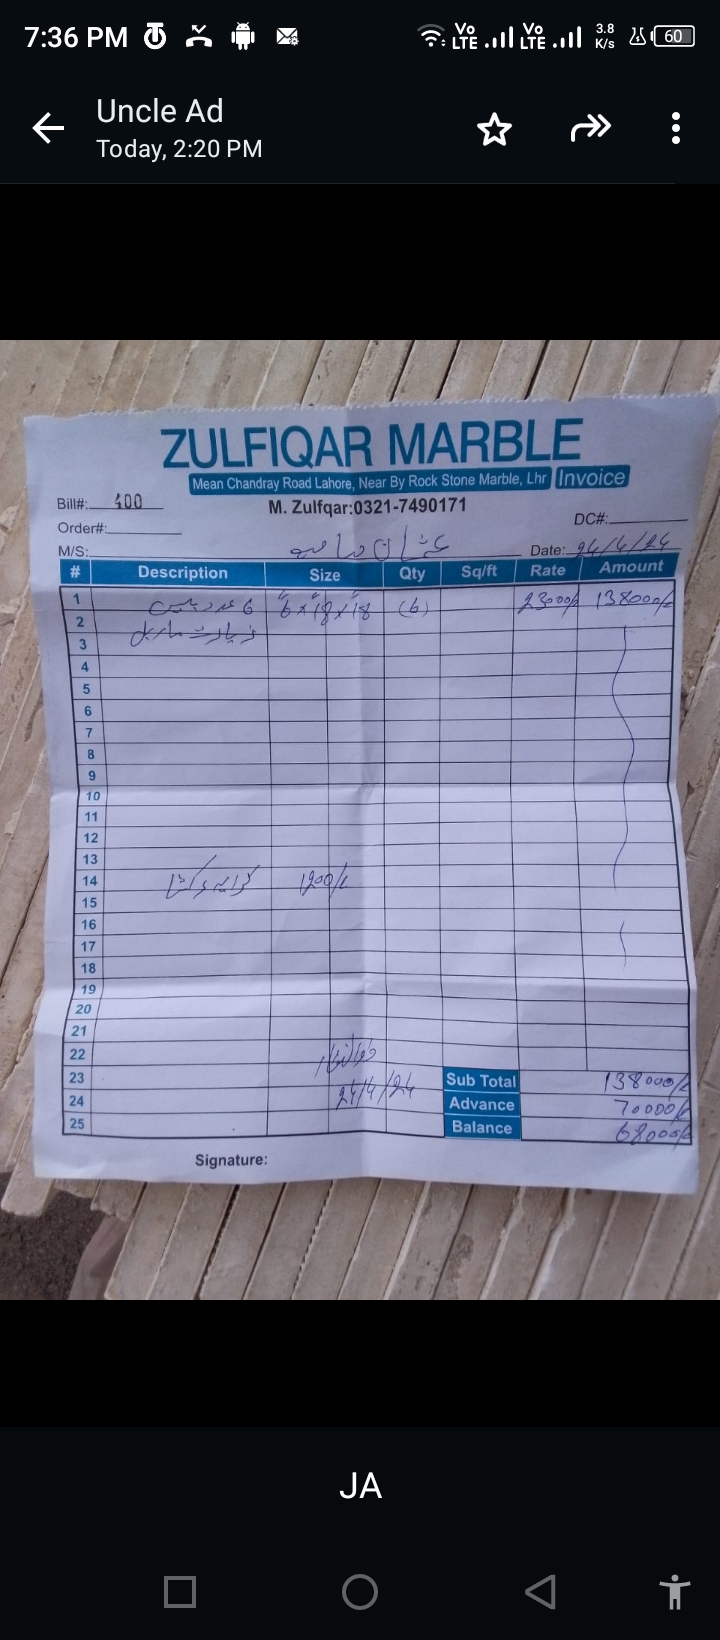 7:36 PM
Vo LTE Vo LTE 3.8 K/s 60
Uncle Ad
Today, 2:20 PM
ZULFIQAR MARBLE
Mean Chandray Road Lahore, Near By Rock Stone Marble, Lhr Invoice
Bill#: 400 M. Zulfqar:0321-7490171
Order#: DC#:
M/S: Date: 24/4/24
# Description Size Qty Sq/ft Rate Amount
1 6 عدد 6"x18"x18" (6) 23000/- 138000/-
2 زیارت ماربل
3
4
5
6
7
8
9
10
11
12
13
14 کرایہ رکشا 1200/-
15
16
17
18
19
20
21
22
23 Sub Total 138000/-
24 24/4/24 Advance 70000/-
25 Balance 68000/-
Signature:
JA